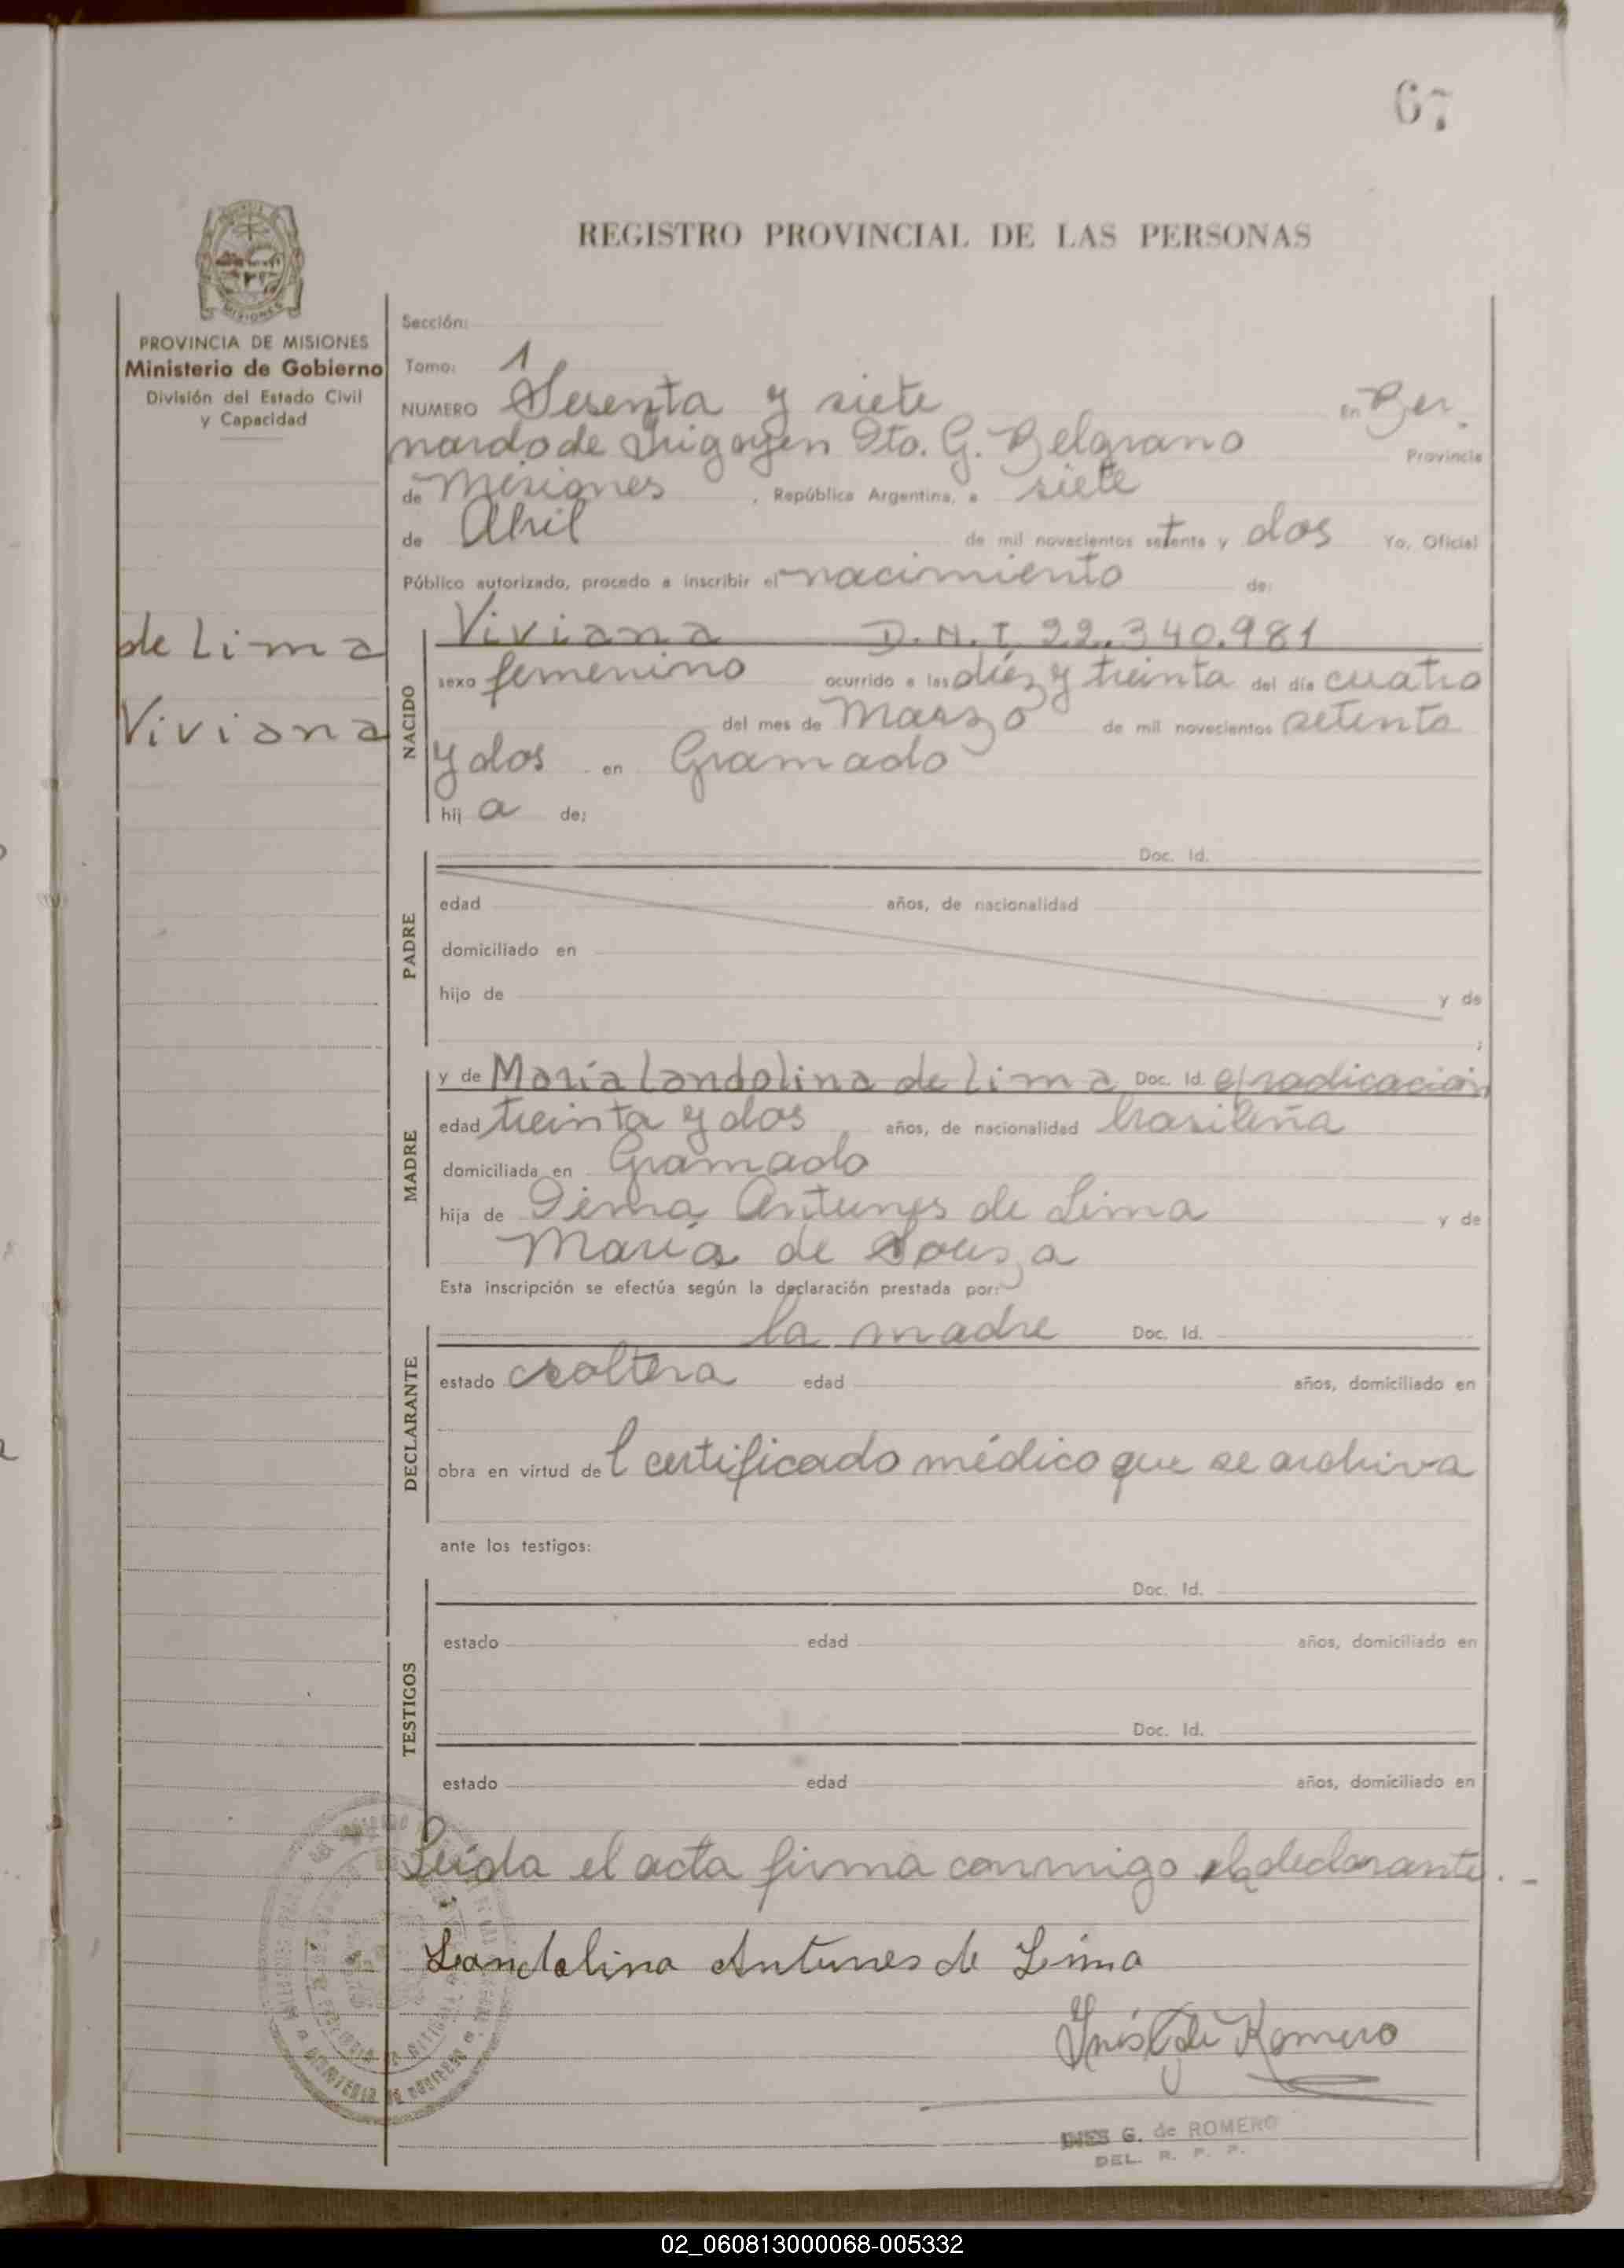 67
REGISTRO PROVINCIAL DE LAS PERSONAS
MISIONES
PROVINCIA DE MISIONES
Ministerio de Gobierno
División del Estado Civil
y Capacidad
Sección:
Tomo: 1
NUMERO Sesenta y siete En Ber.
nardo de Irigoyen Dto. G. Belgrano Provincia
de Misiones, República Argentina, a siete
de Abril de mil novecientos setenta y dos Yo, Oficial
Público autorizado, procedo a inscribir el nacimiento de:
de Lima
Viviana
NACIDO
Viviana D.N.I. 22.340.981
sexo femenino ocurrido a las diéz y treinta del día cuatro
del mes de Marzo de mil novecientos setenta
y dos en Gramado
hija de:
PADRE
Doc. Id.
edad años, de nacionalidad
domiciliado en
hijo de y de
;
MADRE
y de María Landolina de Lima Doc. Id. e/radicación
edad treinta y dos años, de nacionalidad brasileña
domiciliada en Gramado
hija de Antunes de Lima y de
María de Souza
Esta inscripción se efectúa según la declaración prestada por:
DECLARANTE
la madre Doc. Id.
estado soltera edad años, domiciliado en
obra en virtud del certificado médico que se archiva
ante los testigos:
TESTIGOS
Doc. Id.
estado edad años, domiciliado en
Doc. Id.
estado edad años, domiciliado en
Leída el acta firma conmigo la declarante.-
Landolina Antunes de Lima
Inés G de Romero
INES G. de ROMERO
DEL. R. P. P.
02_060813000068-005332